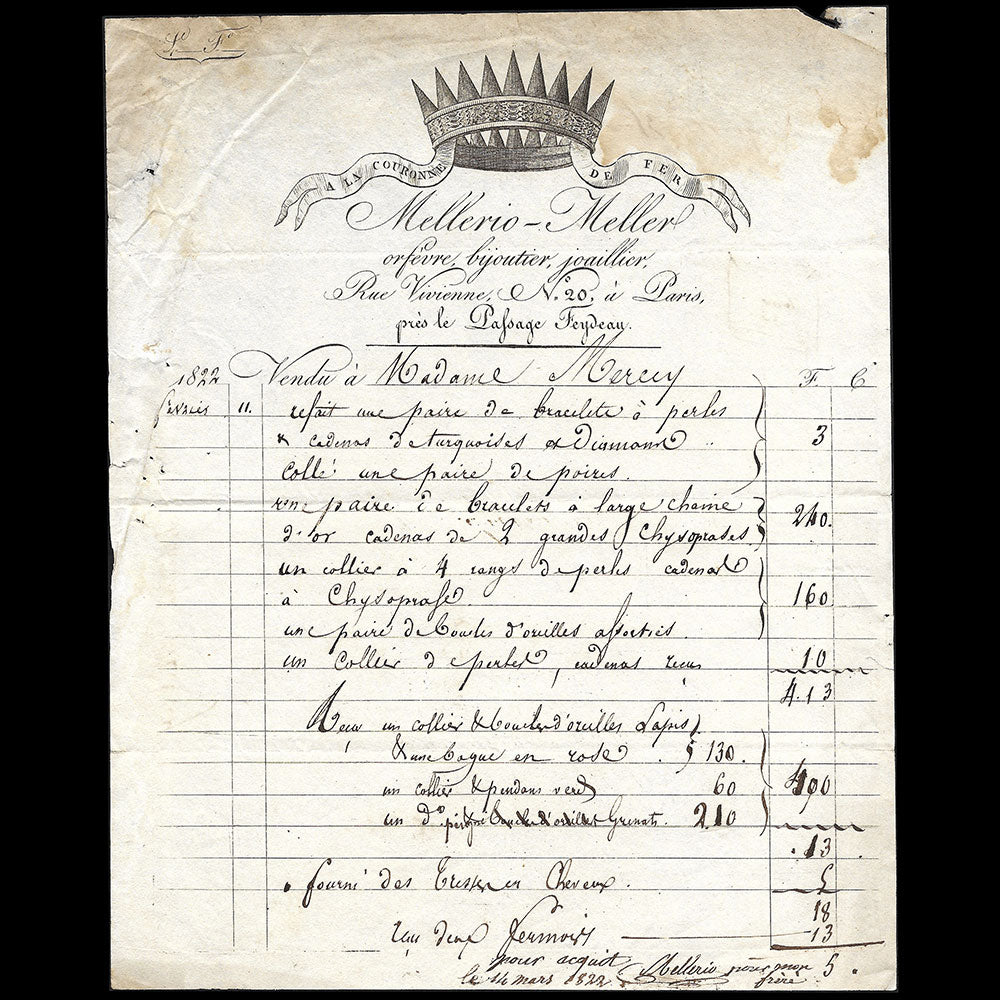 Lo Fo
A LA COURONNE DE FER
Mellerio-Meller
orfèvre, bijoutier, joaillier,
Rue Vivienne, No. 20, à Paris,
près le Passage Feydeau.
1822 Vendu à Madame Mercy F. C
fevrier 11. refait une paire de bracelets à perles
& cadenas de turquoises & Diamans 3
Collé une paire de poires.
une paire de bracelets à large chaine
d'or cadenas de 2 grandes Chysoprases. 240.
un collier à 4 rangs de perles cadenas
à Chysoprase. 160
une paire de boucles d'oreilles assorties.
un Collier de perles, cadenas 10
413
Reçu un collier & boucles d'oreilles Lapis
& une bague en rose 130.
un collier & pendans verd 60 400
un do peigne boucles d'oreilles Grenats. 210
.13
fourni des Tresses en Cheveux. 5
18
deux fermoirs 13
pour acquit 5.
le 14 mars 1822 Mellerio pour mon
frère